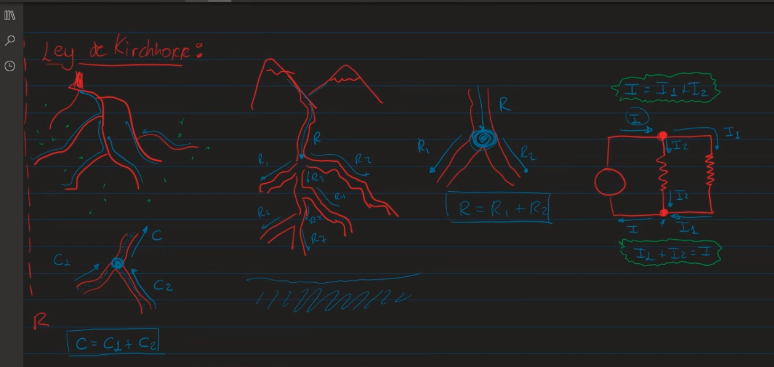 Ley de Kirchhoff:
C
C1
C2
R
C = C1 + C2
R
R1
R2
R3
R4
R5
R7
R
R1
R2
R = R1 + R2
I = I1 + I2
I
I1
I2
I2
I
I1
I1 + I2 = I